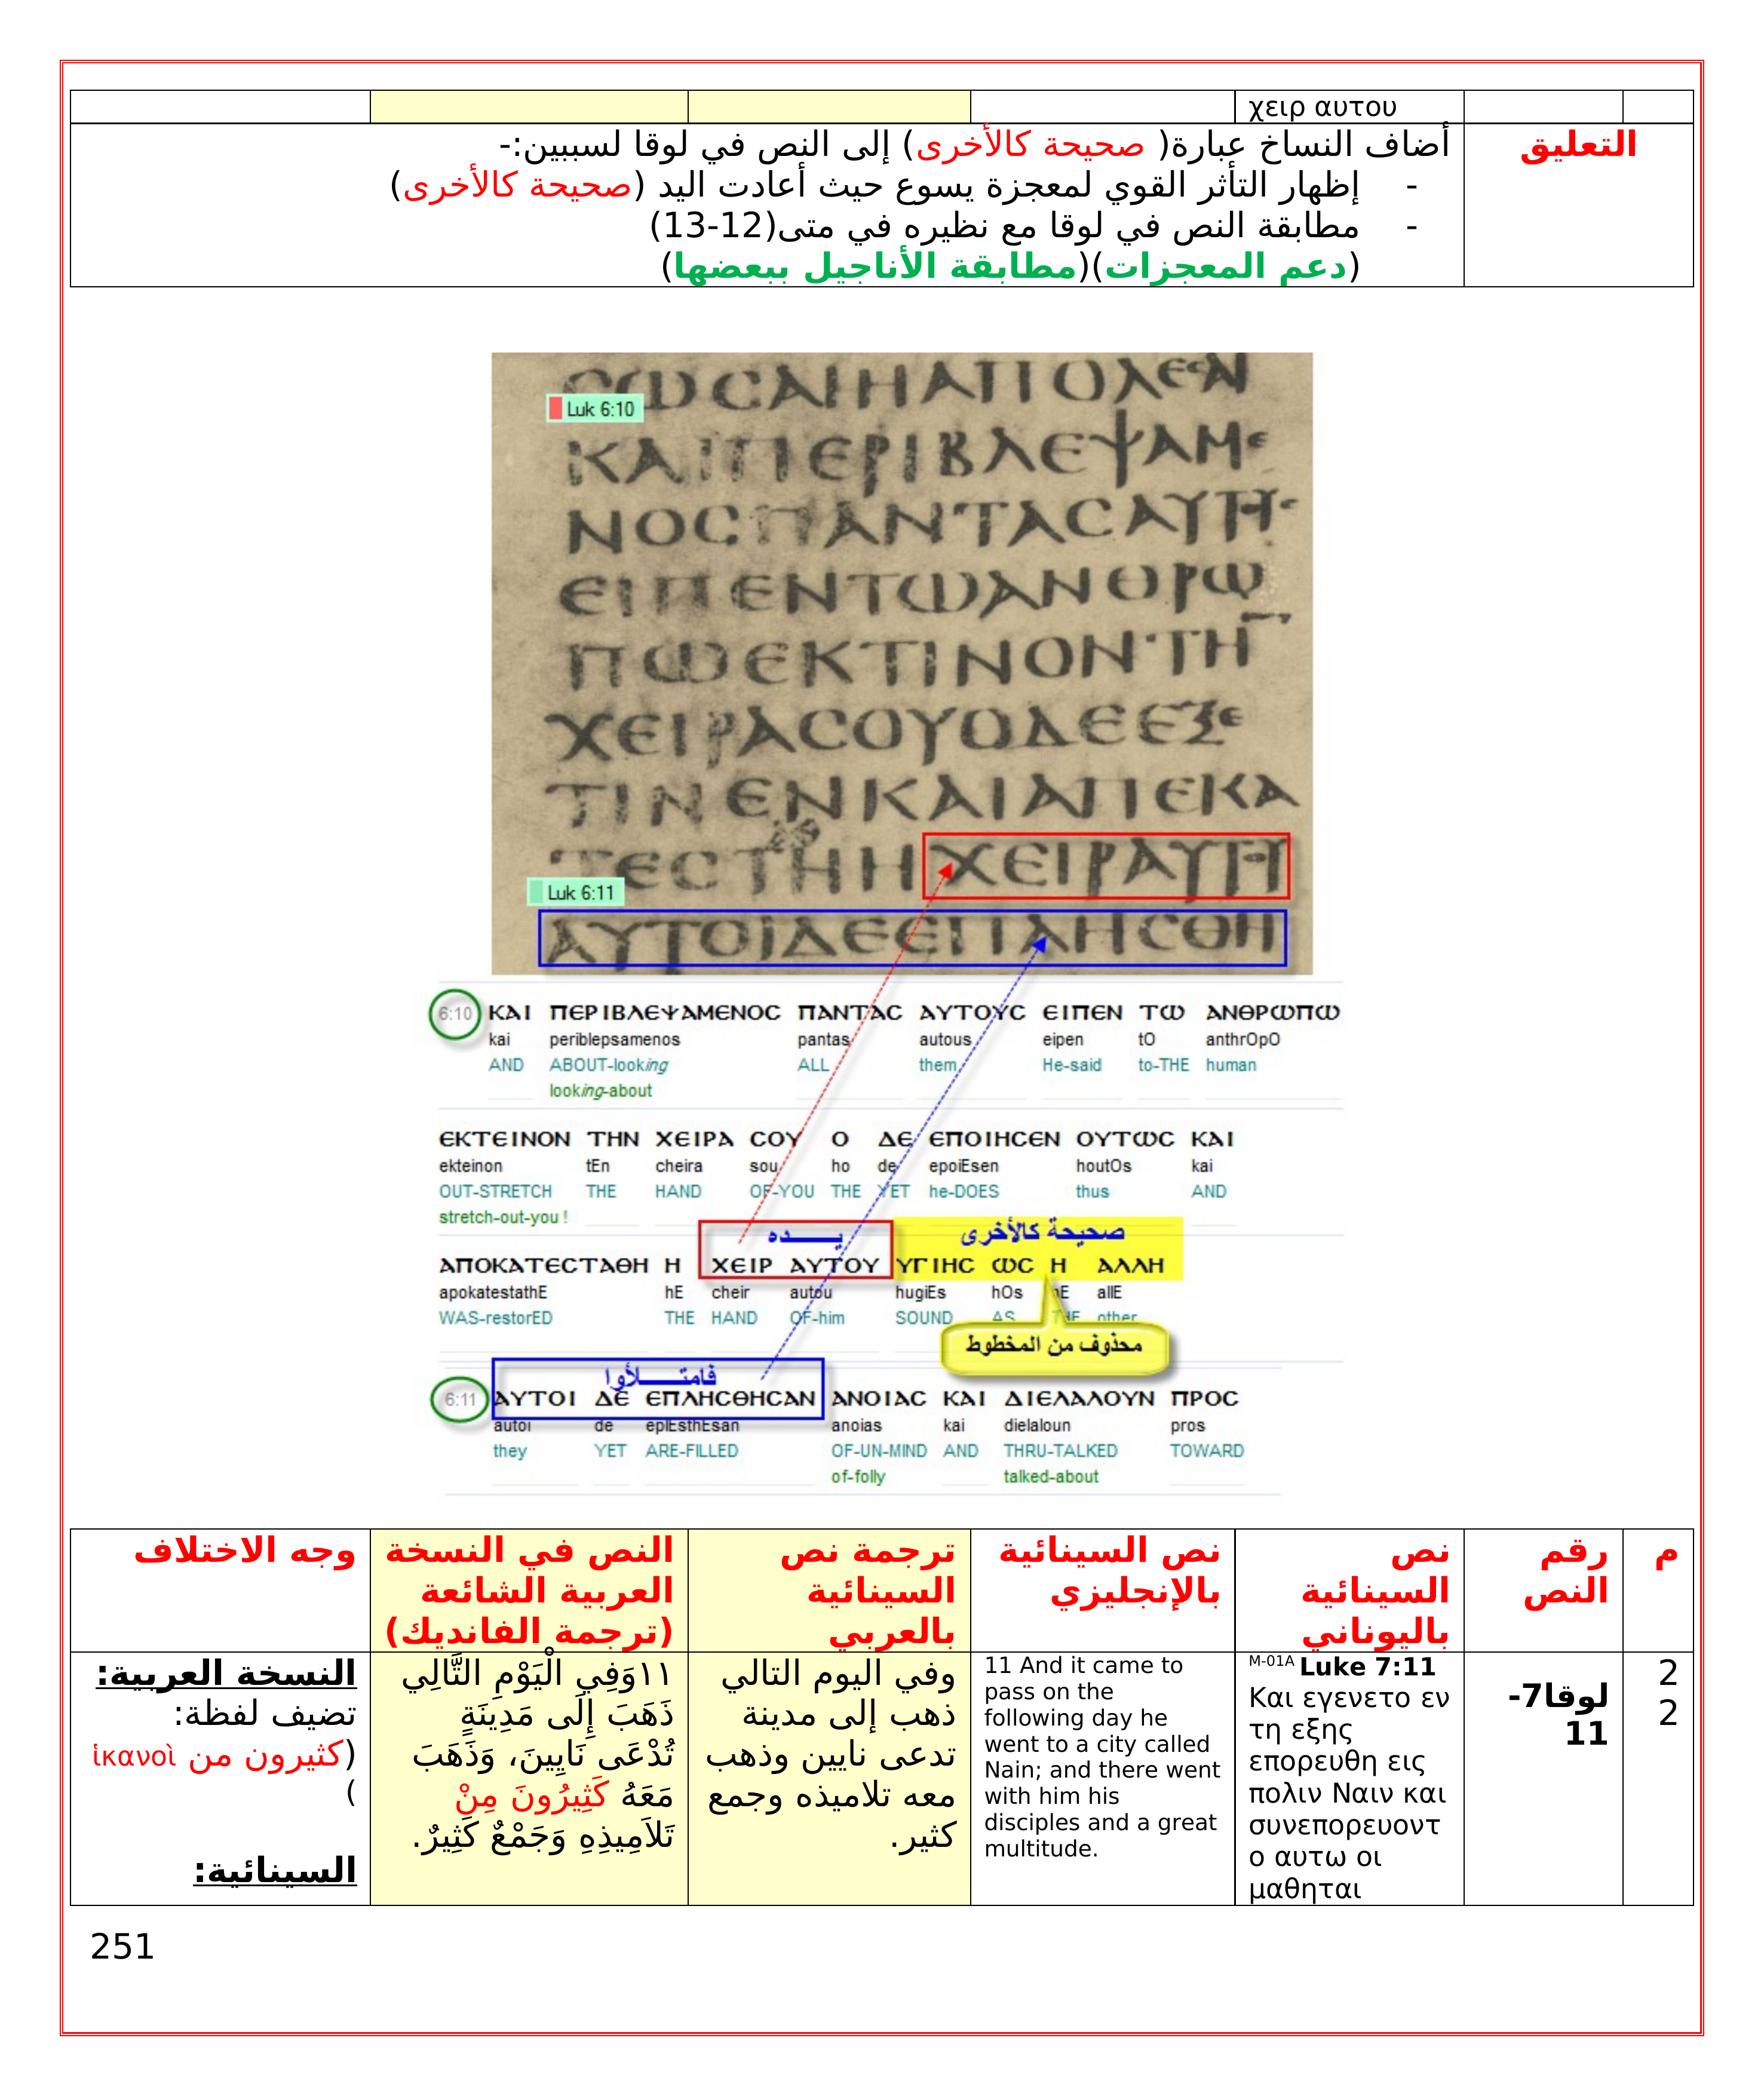 χειρ αυτου
التعليق
أضاف النساخ عبارة( صحيحة كالأخرى) إلى النص في لوقا لسببين:-
- إظهار التأثر القوي لمعجزة يسوع حيث أعادت اليد (صحيحة كالأخرى)
- مطابقة النص في لوقا مع نظيره في متى(12-13)
(دعم المعجزات)(مطابقة الأناجيل ببعضها)
Luk 6:10
ΚΑΙΠΕΡΙΒΛΕΨΑΜΕ
ΝΟCΠΑΝΤΑCΑΥΤΗ
ΕΙΠΕΝΤΩΑΝΘΡΩ
ΠΩΕΚΤΙΝΟΝΤΗ
ΧΕΙΡΑCΟΥΟΔΕΕΞΕ
ΤΙΝΕΝΚΑΙΑΠΕΚΑ
ΤΕCΤΗΗ ΧΕΙΡΑΥΤΗ
Luk 6:11
ΑΥΤΟΙΔΕΕΠΛΗCΘΗ
6:10 ΚΑΙ ΠΕΡΙΒΛΕΨΑΜΕΝΟC ΠΑΝΤΑC ΑΥΤΟΥC ΕΙΠΕΝ ΤΩ ΑΝΘΡΩΠΩ
kai periblepsamenos pantas autous eipen tO anthrOpO
AND ABOUT-looking ALL them He-said to-THE human
looking-about
ΕΚΤΕΙΝΟΝ ΤΗΝ ΧΕΙΡΑ CΟΥ Ο ΔΕ ΕΠΟΙΗCΕΝ ΟΥΤΩC ΚΑΙ
ekteinon tEn cheira sou ho de epoiEsen houtOs kai
OUT-STRETCH THE HAND OF-YOU THE YET he-DOES thus AND
stretch-out-you !
يـــــده صحيحة كالأخرى
ΑΠΟΚΑΤΕCΤΑΘΗ Η ΧΕΙΡ ΑΥΤΟΥ ΥΓΙΗC ΩC Η ΑΛΛΗ
apokatestathE hE cheir autou hugiEs hOs hE allE
WAS-restorED THE HAND OF-him SOUND AS THE other
محذوف من المخطوط
فامتـــــلأوا
6:11 ΑΥΤΟΙ ΔΕ ΕΠΛΗCΘΗCΑΝ ΑΝΟΙΑC ΚΑΙ ΔΙΕΛΑΛΟΥΝ ΠΡΟC
autoi de eplEsthEsan anoias kai dielaloun pros
they YET ARE-FILLED OF-UN-MIND AND THRU-TALKED TOWARD
of-folly talked-about
م
رقم
النص
نص
السينائية
باليوناني
نص السينائية
بالإنجليزي
ترجمة نص
السينائية
بالعربي
النص في النسخة
العربية الشائعة
(ترجمة الفانديك)
وجه الاختلاف
2
2
لوقا7-
11
M-01A Luke 7:11
Και εγενετο εν
τη εξης
επορευθη εις
πολιν Ναιν και
συνεπορευοντ
ο αυτω οι
μαθηται
11 And it came to
pass on the
following day he
went to a city called
Nain; and there went
with him his
disciples and a great
multitude.
وفي اليوم التالي
ذهب إلى مدينة
تدعى نايين وذهب
معه تلاميذه وجمع
كثير.
١١وَفِي الْيَوْمِ التَّالِي
ذَهَبَ إِلَى مَدِينَةٍ
تُدْعَى نَايِينَ، وَذَهَبَ
مَعَهُ كَثِيرُونَ مِنْ
تَلاَمِيذِهِ وَجَمْعٌ كَثِيرٌ.
النسخة العربية:
تضيف لفظة:
(كثيرون من ἱκανοὶ
)
السينائية:
251